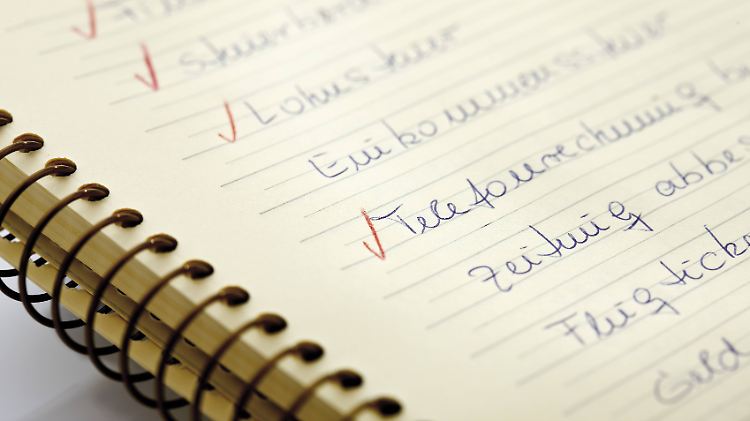 Steuerber
Lohnsteuer
Einkommenssteuer
Telefonrechnung b
Zeitung abbes
Flugticke
Geld